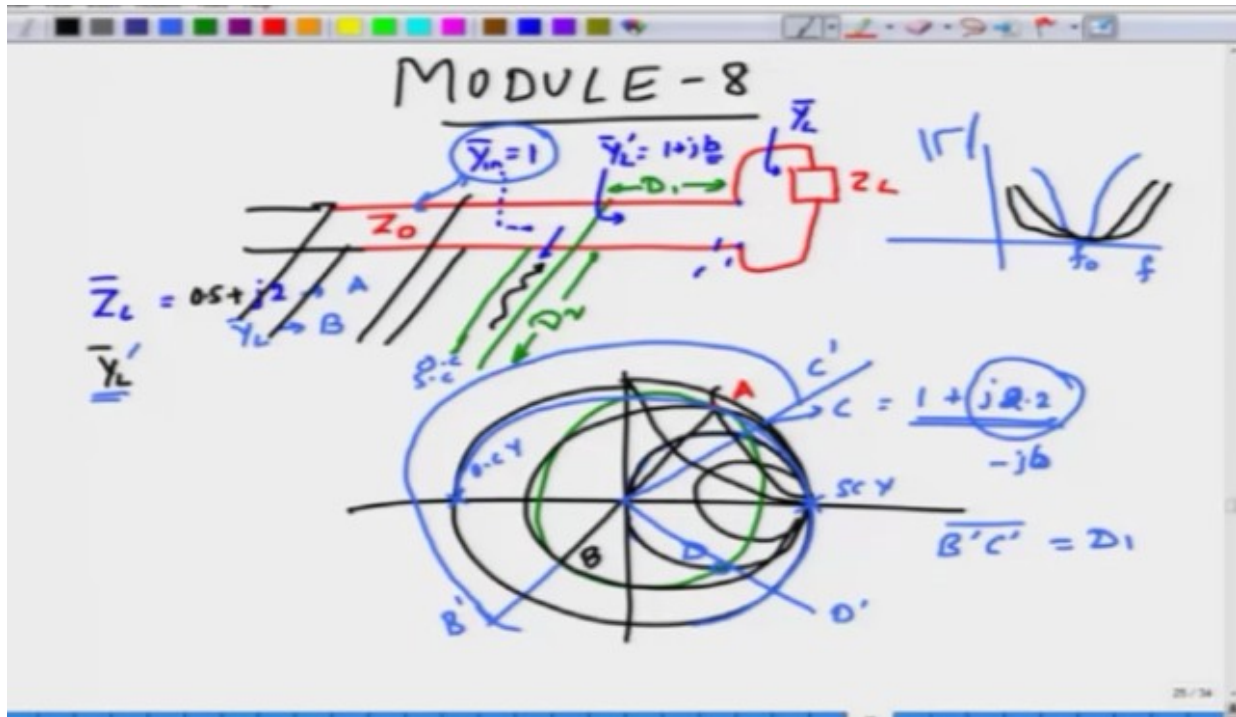 MODULE-8
Y̅in = 1
Y̅L' = 1+jb
Y̅L
D1
ZL
|Γ|
Z0
f0
f
Z̅L = 0.5 + j2 → A
Y̅L → B
Y̅L'
O.C
S.C
A
C'
C = 1 + j2.2
-jb
O.C Y
SC Y
B
D
B'
D'
B'C' = D1
25 / 36